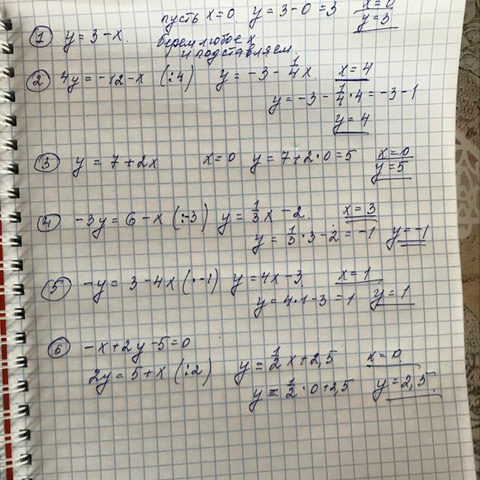 пусть x=0 y=3-0=3 x=0
① y=3-x. берем любое x y=3
и подставляем.
② 4y=-12-x (:4) y=-3-1/4x. x=4
y=-3-1/4·4=-3-1
y=4
③ y=7+2x x=0 y=7+2·0=5 x=0
y=5
④ -3y=6-x (:-3) y=1/3x-2. x=3
y=1/3·3-2=-1 y=-1
⑤ -y=3-4x (·-1) y=4x-3 x=1
y=4·1-3=1 y=1
⑥ -x+2y-5=0
2y=5+x (:2) y=1/2x+2,5 x=0
y=1/2·0+2,5 y=2,5.